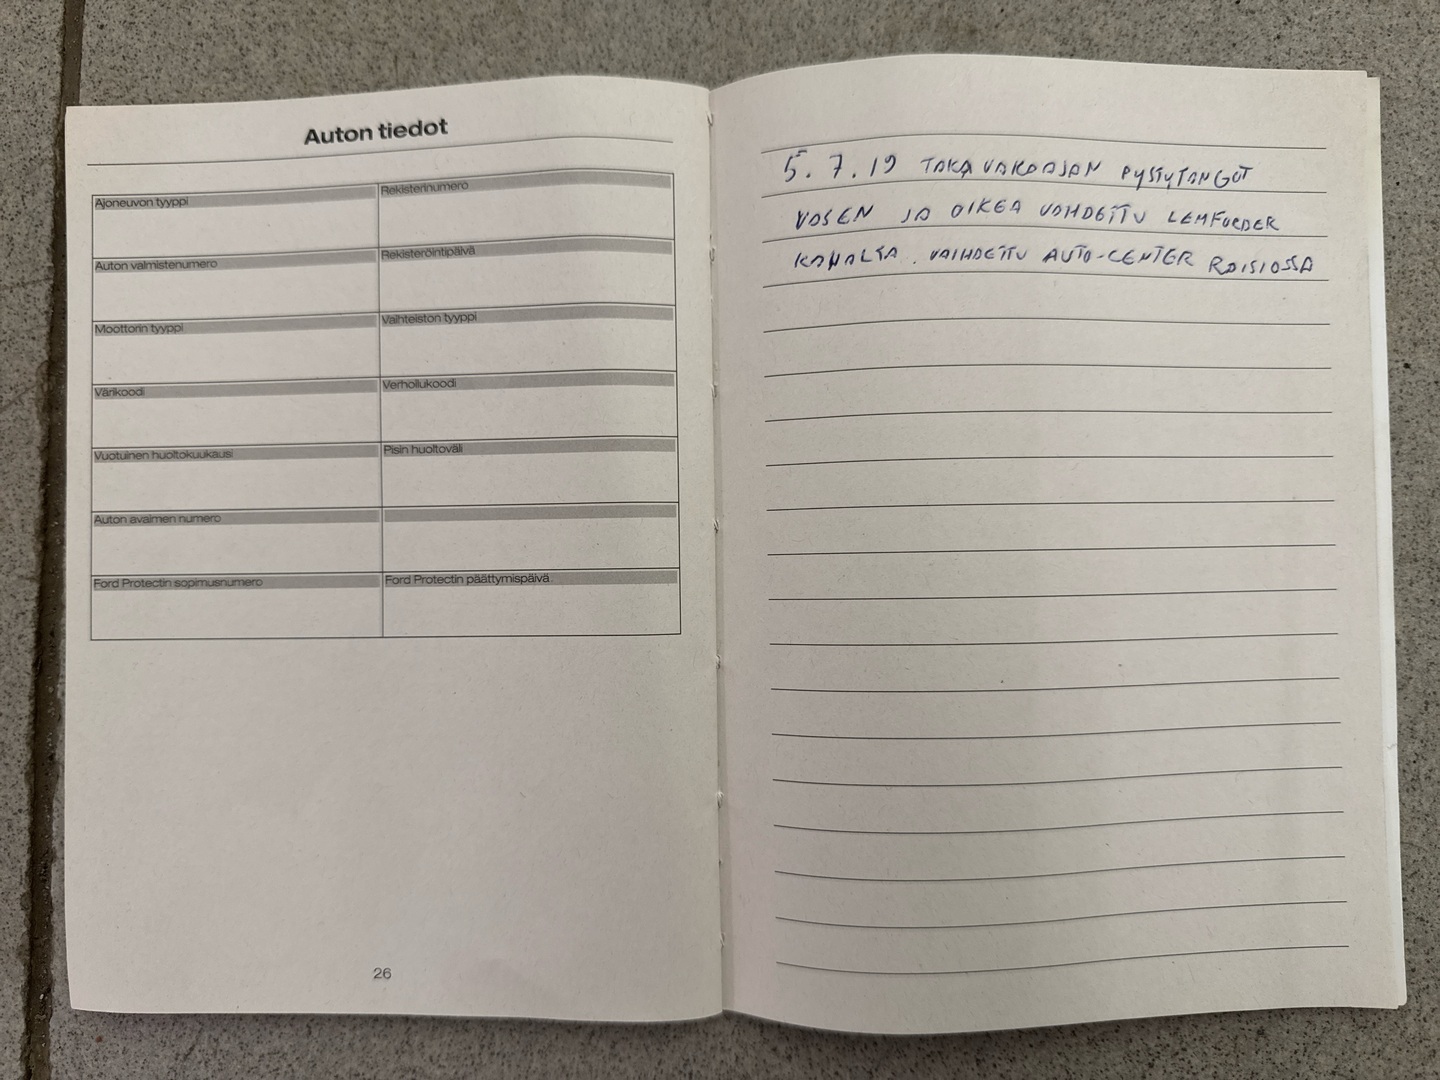 Auton tiedot
Ajoneuvon tyyppi
Rekisterinumero
Auton valmistenumero
Rekisteröintipäivä
Moottorin tyyppi
Vaihteiston tyyppi
Värikoodi
Verhoilukoodi
Vuotuinen huoltokuukausi
Pisin huoltoväli
Auton avaimen numero
Ford Protectin sopimusnumero
Ford Protectin päättymispäivä
26
5.7.19 TAKA PYSTYTANGOT
VASEN JA OIKEA LEMFOERDER
VAIHDETTU AUTO-CENTER RAISIOSSA